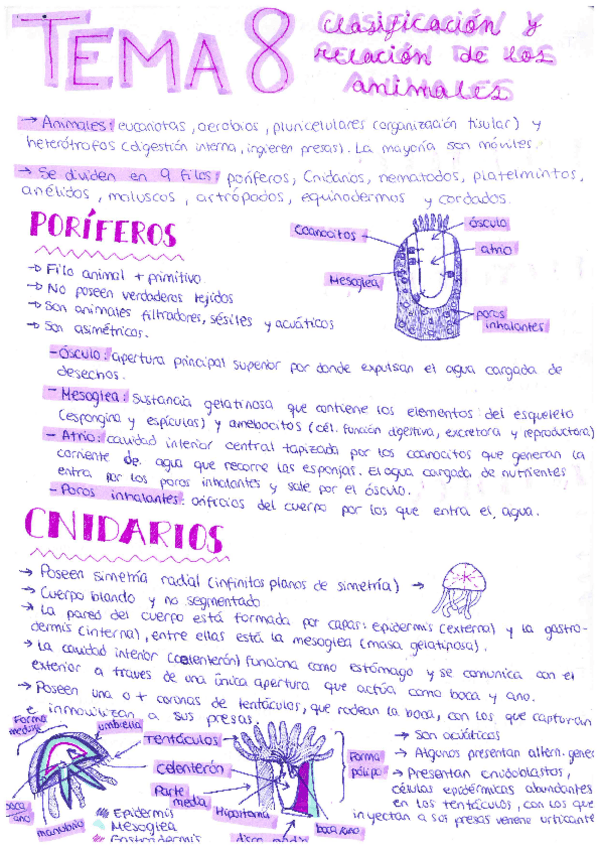 TEMA 8 Clasificación y
relación de los
animales
→ Animales: eucariotas, aerobios, pluricelulares (organización tisular) y
heterótrofos (digestión interna, ingieren presas). La mayoría son móviles.
→ Se dividen en 9 filos: poríferos, Cnidarios, nematodos, platelmintos,
anélidos, moluscos, artrópodos, equinodermos y cordados.
PORÍFEROS
→ Filo animal + primitivo
→ No poseen verdaderos tejidos
→ Son animales filtradores, sésiles y acuáticos
→ Son asimétricos.
coanocitos
ósculo
atrio
Mesoglea
poros
inhalantes
- Ósculo: apertura principal superior por donde expulsan el agua cargada de
desechos.
- Mesoglea: sustancia gelatinosa que contiene los elementos del esqueleto
(espongina y espículas) y amebocitos (cél. función digestiva, excretora y reproductora)
- Atrio: cavidad interior central tapizada por los coanocitos que generan la
corriente de agua que recorre las esponjas. El agua cargada de nutrientes
entra por los poros inhalantes y sale por el ósculo.
- Poros inhalantes: orificios del cuerpo por los que entra el agua.
CNIDARIOS
→ Poseen simetría radial (infinitos planos de simetría) →
→ Cuerpo blando y no segmentado
→ La pared del cuerpo está formada por capas: epidermis (externa) y la gastro-
dermis (interna), entre ellas está la mesoglea (masa gelatinosa).
→ La cavidad interior (celenterón) funciona como estómago y se comunica con el
exterior a traves de una única apertura que actúa como boca y ano.
→ Poseen una o + coronas de tentáculos, que rodean la boca, con los que capturan
e inmovilizan a sus presas.
Forma
medusa
umbrella
Tentáculos
Celenterón
Parte
media
Hipostoma
boca
ano
manubrio
Epidermis
Mesoglea
Gastrodermis
boca/ano
Forma
pólipo
→ Son acuáticos
→ Algunos presentan altern. gene
→ Presentan cnidoblastos,
células epidérmicas abundantes
en los tentáculos, con los que
inyectan a sus presas veneno urticante